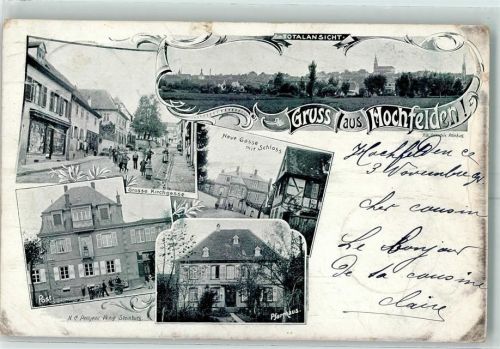 TOTALANSICHT
Gruss aus Hochfelden i.
Neue Gasse
mit Schloss.
Grosse Kirchgasse
Post
Pfarrhaus.
Hochfelden ce
3 Novembre
cher cousin
Le bonjour
de ta cousine
Claire